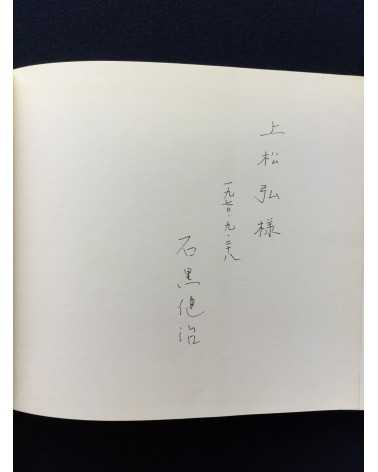 上松弘様
一九七〇・九・二十八
石黒健治